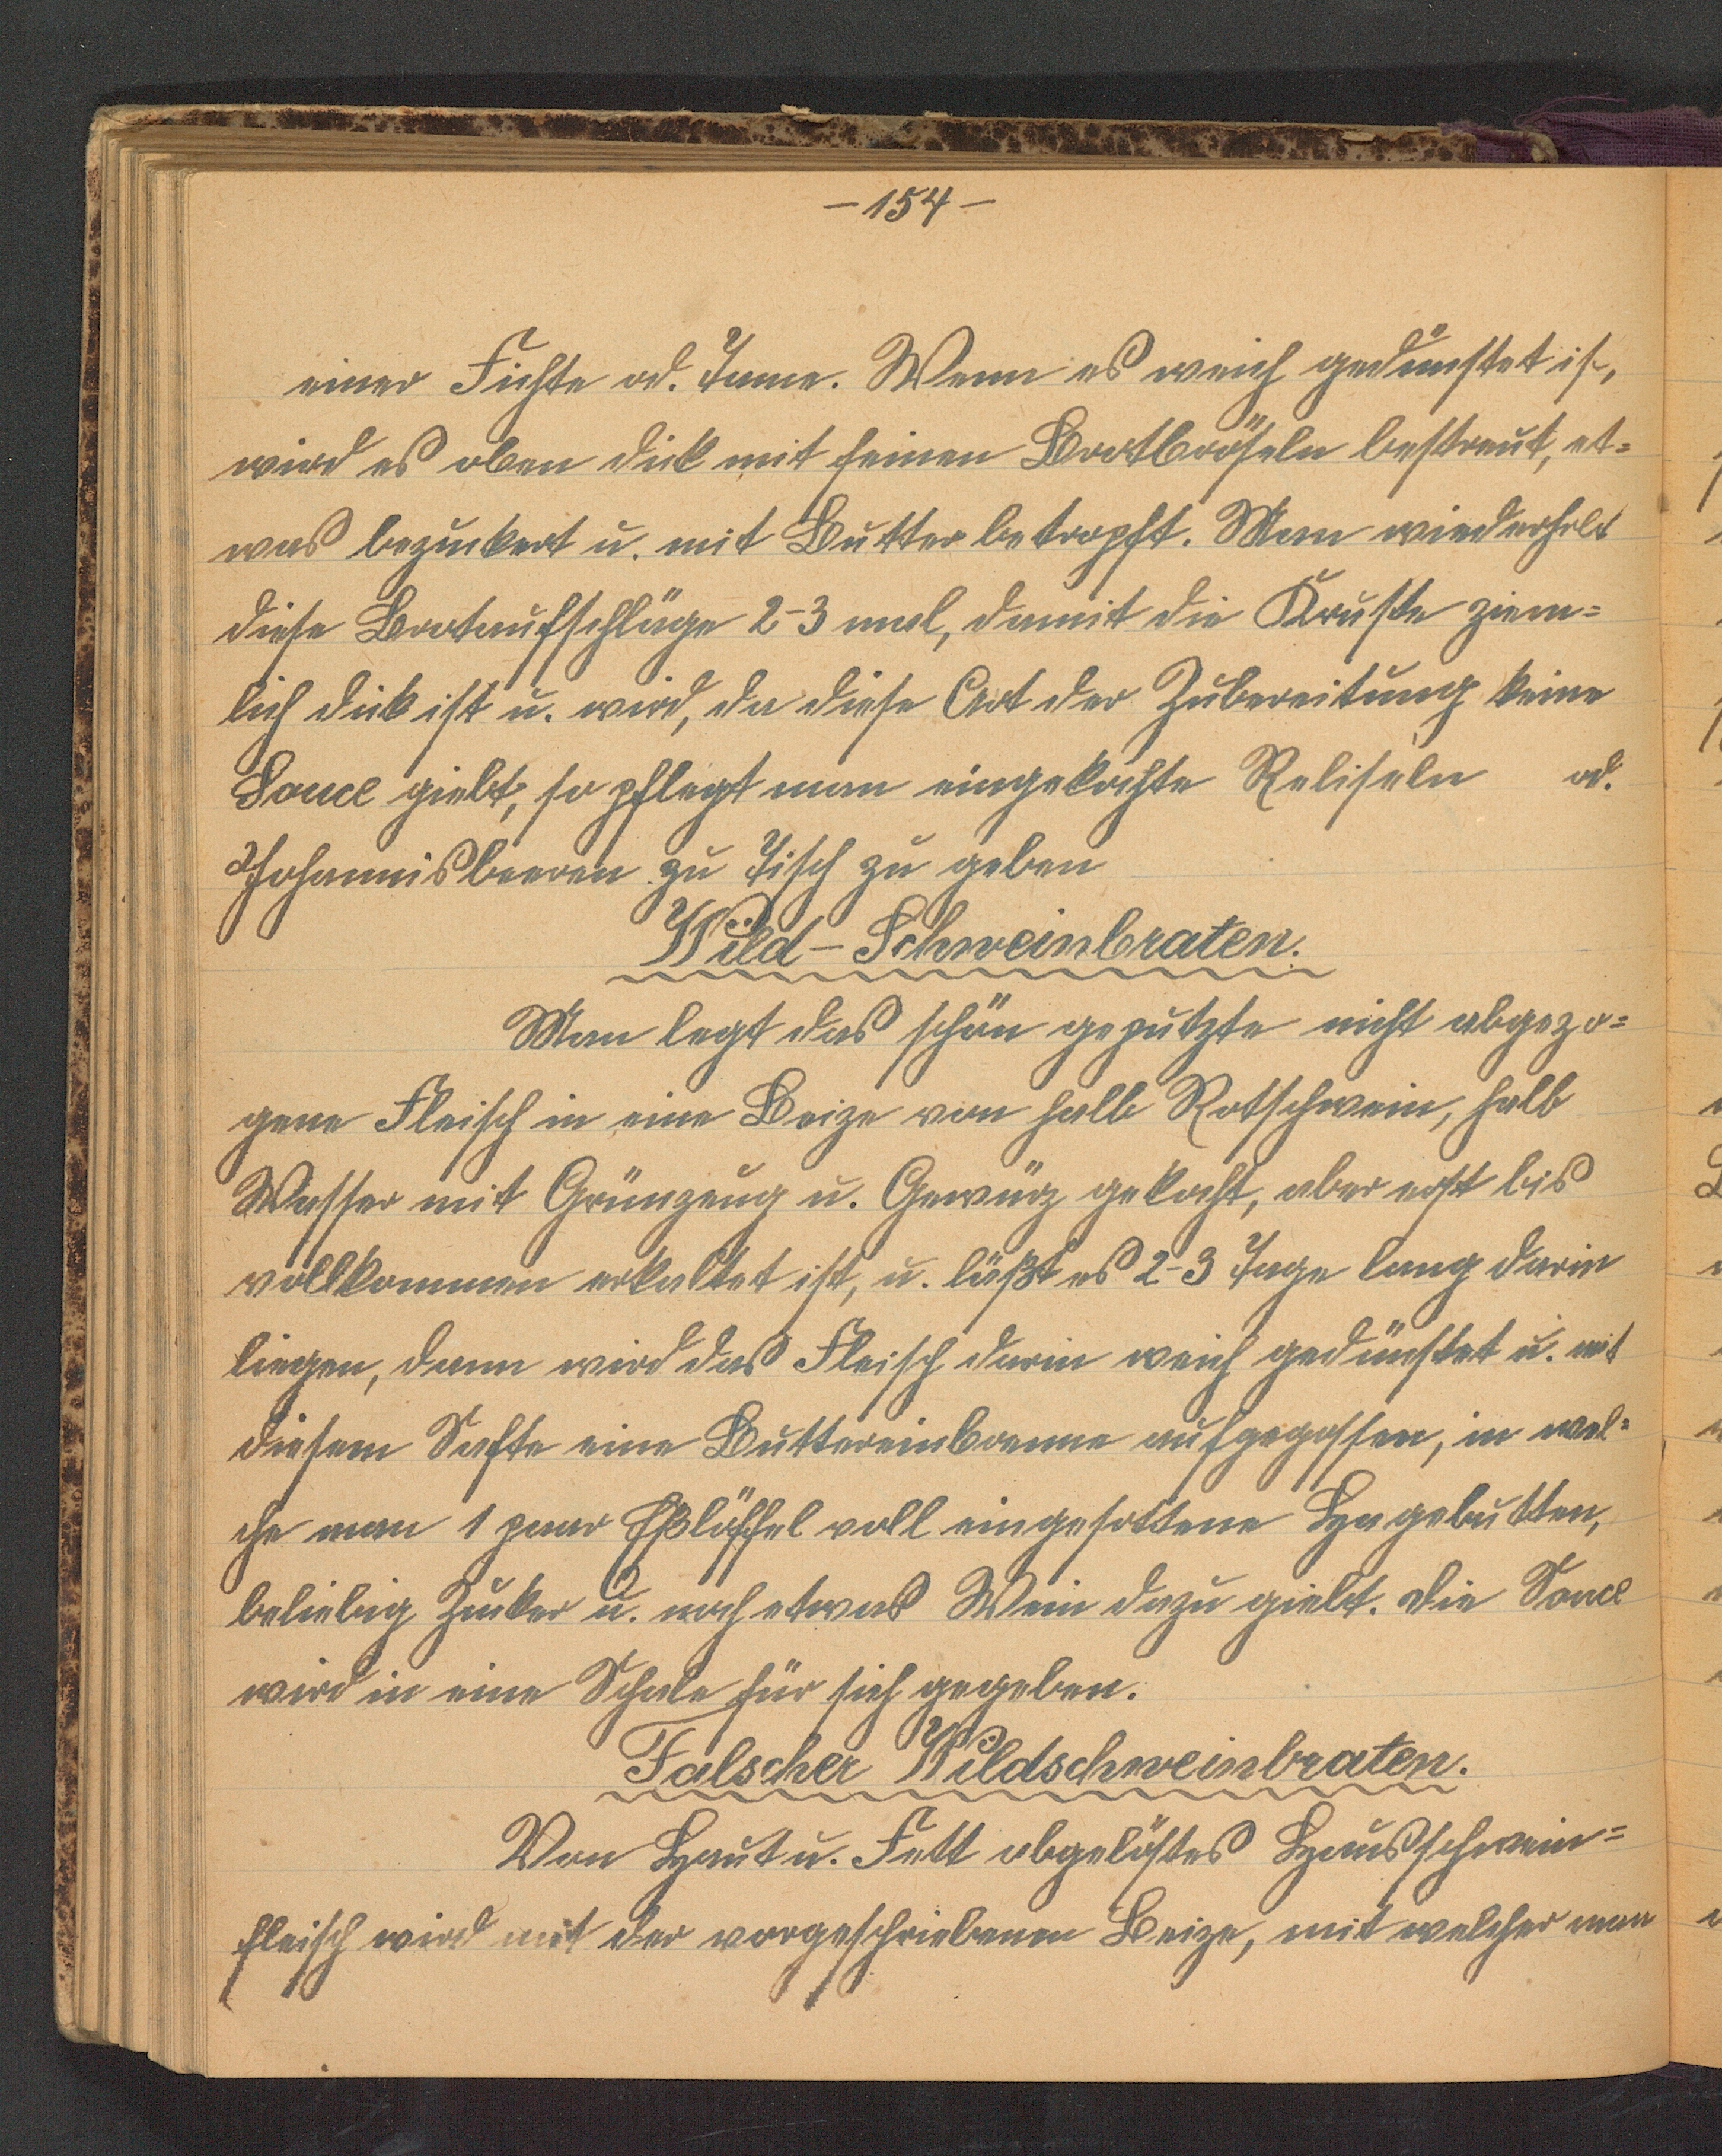 - 154 -
einer Fichte od. Tanne. Wenn es weich gedünstet ist,
wird es oben dick mit feinen Brotbröseln bestreut, et=
was bezuckert u. mit Butter betropft. Man wiederholt
diese Brotaufschläge 2-3 mal, damit die Kruste ziem=
lich dick ist u. wird, da diese Art der Zubereitung keine
Sauce giebt, so pflegt man eingekochte od.
Johannisbeeren zu Tisch zu geben
Wild-Schweinbraten.
Man legt das schön geputzte nicht abgezo=
gene Fleisch in eine Beize von halb Rotschwein, halb
Wasser mit Grünzeug u. Gewürz gekocht, aber erst bis
vollkommen erkaltet ist, u. läßt es 2-3 Tage lang darin
liegen, dann wird das Fleisch darin weich gedünstet u. mit
diesem Safte eine Buttereinbrenne aufgegossen, in wel=
che man 1 paar Eßlöffel voll eingesottene Hagebutten,
beliebig Zucker u. noch etwas Wein dazu giebt. Die Sauce
wird in eine Schale für sich gegeben.
Falscher Wildschweinbraten.
Von Haut u. Fett abgelöstes Hausschwein=
fleisch wird mit der vorgeschriebenen Beize, mit welcher man